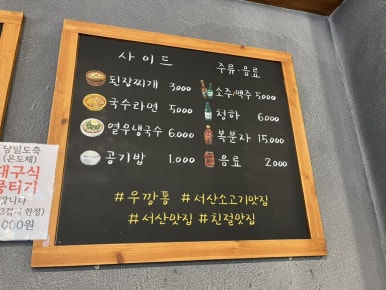 사이드
된장찌개 3,000
국수라면 5,000
열무냉국수 6,000
공기밥 1,000
주류·음료
소주/맥주 5,000
청하 6,000
복분자 15,000
음료 2,000
#우깡통 #서산소고기맛집
#서산맛집 #친절맛집
당일도축
(온도체)
대구식
뭉티기
000원